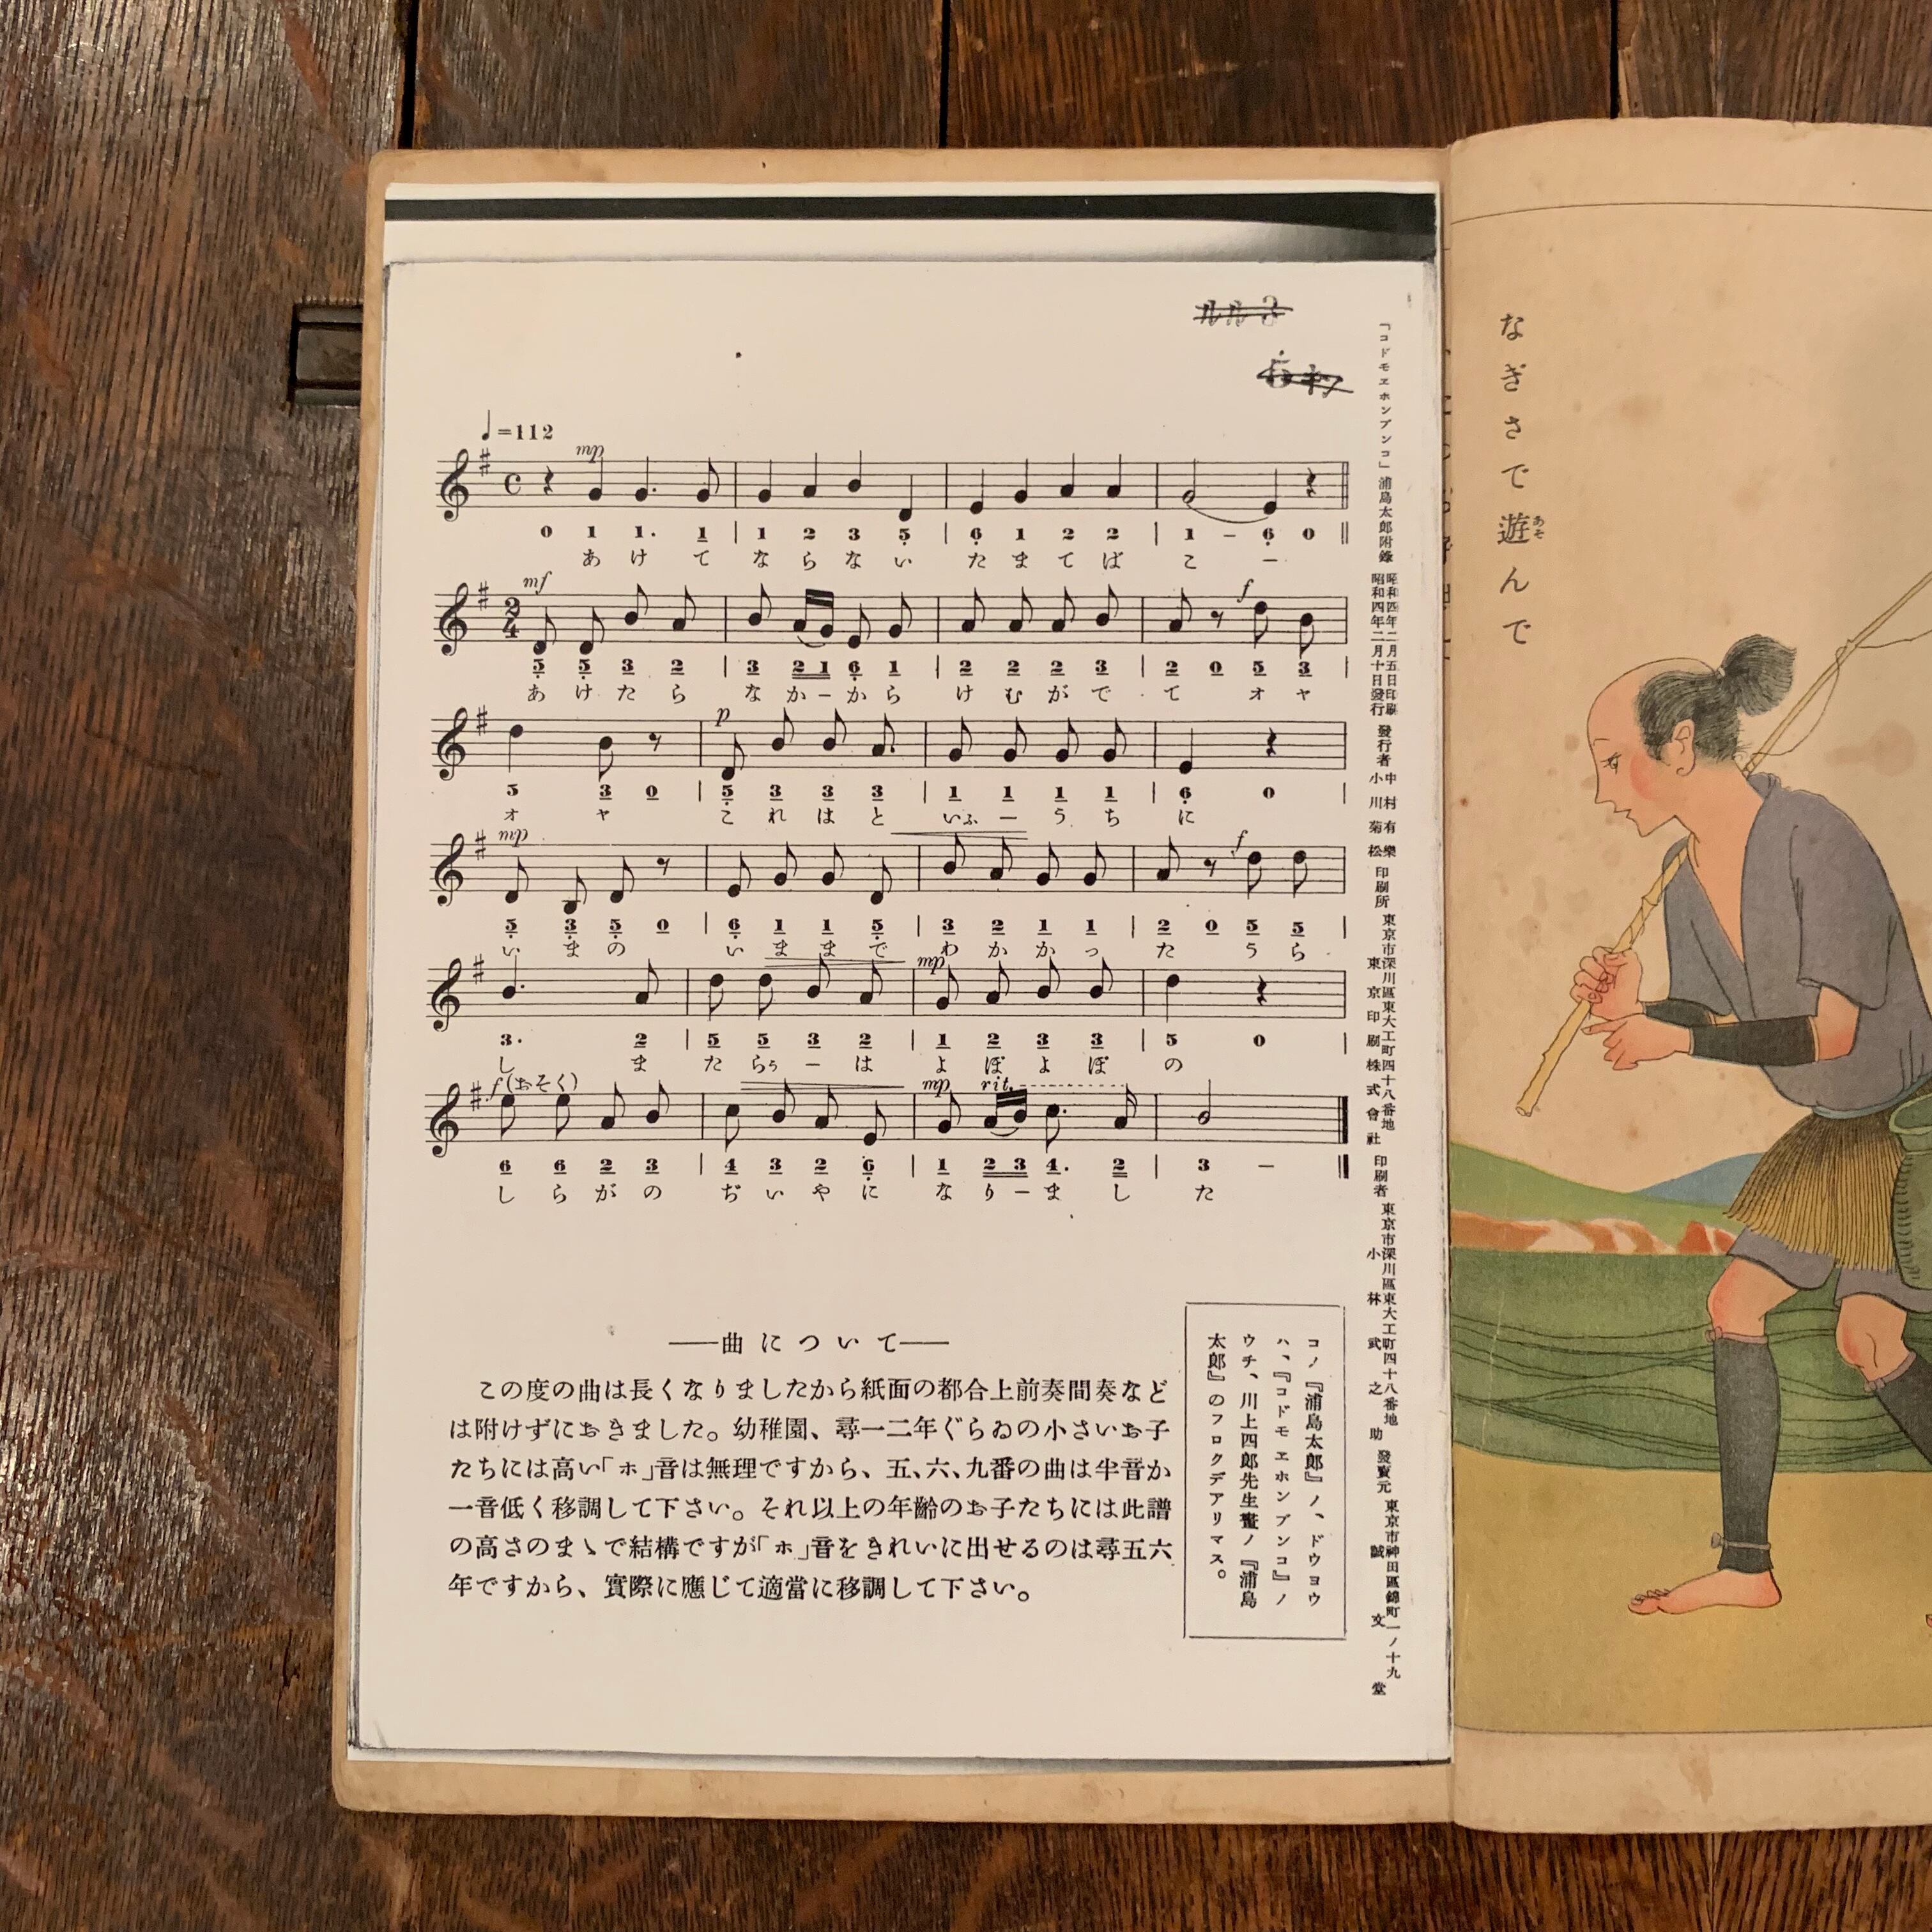 ♩=112
mp
0 1 1. 1 | 1 2 3 5 | 6 1 2 2 | 1 – 6 0
あ け て な ら な い た ま て ば こ ー
mf f
5 5 3 2 | 3 2 1 6 1 | 2 2 2 3 | 2 0 5 3 |
あ け た ら な か – か ら け む が で て オ ヤ
p
5 3 0 | 5 3 3 3 | 1 1 1 1 | 6 0 |
オ ヤ こ れ は と いふ ー う ち に
mp f
5 3 5 0 | 6 1 1 5 | 3 2 1 1 | 2 0 5 5 |
い ま の い ま ま で わ か か っ た う ら
mp
3. 2 | 5 5 3 2 | 1 2 3 3 | 5 0 |
し ま た らう ー は よ ぼ よ ぼ の
f(おそく) mp rit.
6 6 2 3 | 4 3 2 6 | 1 2 3 4. 2 | 3 –
し ら が の ぢ い や に な り ー ま し た
——曲について——
この度の曲は長くなりましたから紙面の都合上前奏間奏など
は附けずにおきました。幼稚園、尋一二年ぐらゐの小さいお子
たちには高い「ホ」音は無理ですから、五、六、九番の曲は半音か
一音低く移調して下さい。それ以上の年齢のお子たちには此譜
の高さのまゝで結構ですが「ホ」音をきれいに出せるのは尋五六
年ですから、實際に應じて適當に移調して下さい。
コノ『浦島太郎』ノ、ドウヨウ
ハ、『コドモヱホンブンコ』ノ
ウチ、川上四郎先生畫ノ『浦島
太郎』のフロクデアリマス。
「コドモヱホンブンコ」浦島太郎附錄
昭和四年二月五日印刷
昭和四年二月十日發行
發行者
中村有樂
小川菊松
印刷所
東京市深川區東大工町四十八番地
東京印刷株式會社
印刷者
東京市深川區東大工町四十八番地
小林武之助
發賣元
東京市神田區錦町一ノ十九
誠文堂
なぎさで遊んで
あそ